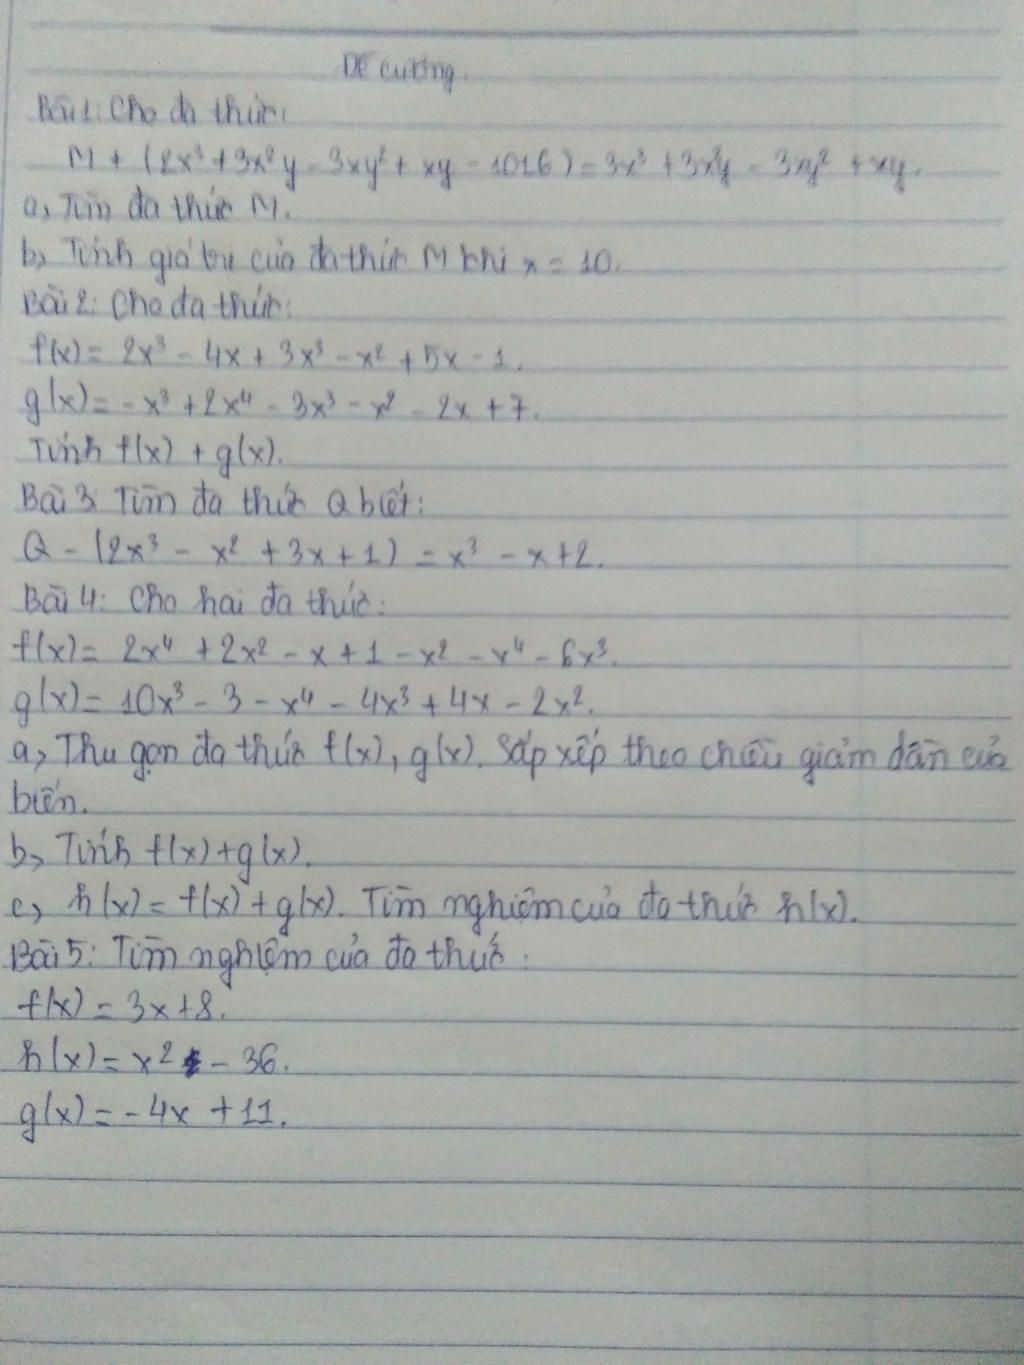 Đề cương.
Bài 1: Cho đa thức:
M + (2x³ + 3x²y - 3xy² + xy - 1016) = 3x³ + 3x²y - 3xy² + xy.
a, Tìm đa thức M.
b, Tính giá trị của đa thức M khi x = 10.
Bài 2: Cho đa thức:
f(x) = 2x³ - 4x + 3x³ - x² + 5x - 1.
g(x) = - x³ + 2x⁴ - 3x³ - x² - 2x + 7.
Tính f(x) + g(x).
Bài 3: Tìm đa thức Q biết:
Q - (2x³ - x² + 3x + 1) = x³ - x + 2.
Bài 4: Cho hai đa thức:
f(x) = 2x⁴ + 2x² - x + 1 - x² - x⁴ - 6x³.
g(x) = 10x³ - 3 - x⁴ - 4x³ + 4x - 2x².
a, Thu gọn đa thức f(x), g(x). Sắp xếp theo chiều giảm dần của
biến.
b, Tính f(x) + g(x).
c, h(x) = f(x) + g(x). Tìm nghiệm của đa thức h(x).
Bài 5: Tìm nghiệm của đa thức:
f(x) = 3x + 8.
h(x) = x² - 36.
g(x) = - 4x + 11.